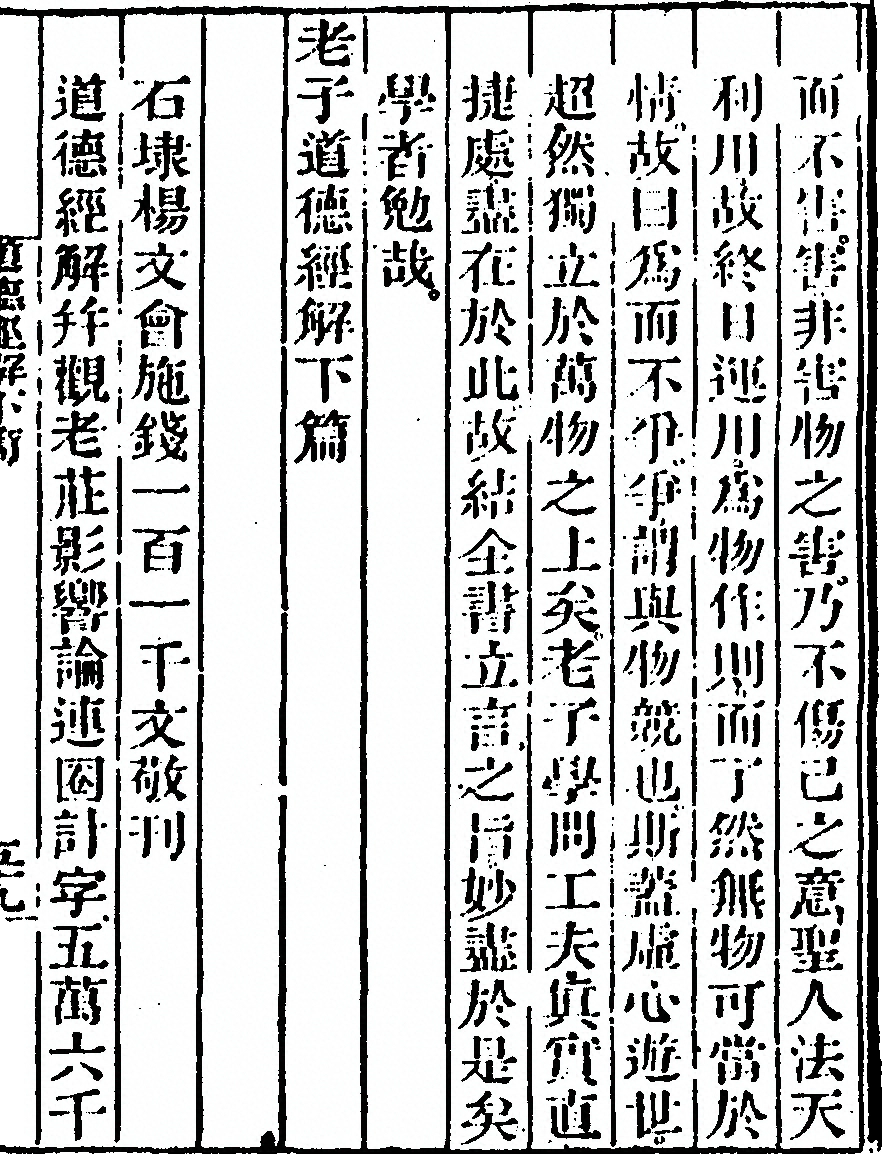 而不害。害非害物之害。乃不傷己之意。聖人法天
利用。故終日運用。爲物作則。而了然無物可當於
情。故曰爲而不爭。爭謂與物競也。斯蓋虛心遊世。
超然獨立於萬物之上矣。老子學問工夫。真實直
捷處。盡在於此。故結全書立言之旨。妙盡於是矣
學者勉哉。
老子道德經解下篇
石埭楊文會施錢一百一千文敬刊
道德經解并觀老莊影響論連圈計字五萬六千
道德經解下篇
五九